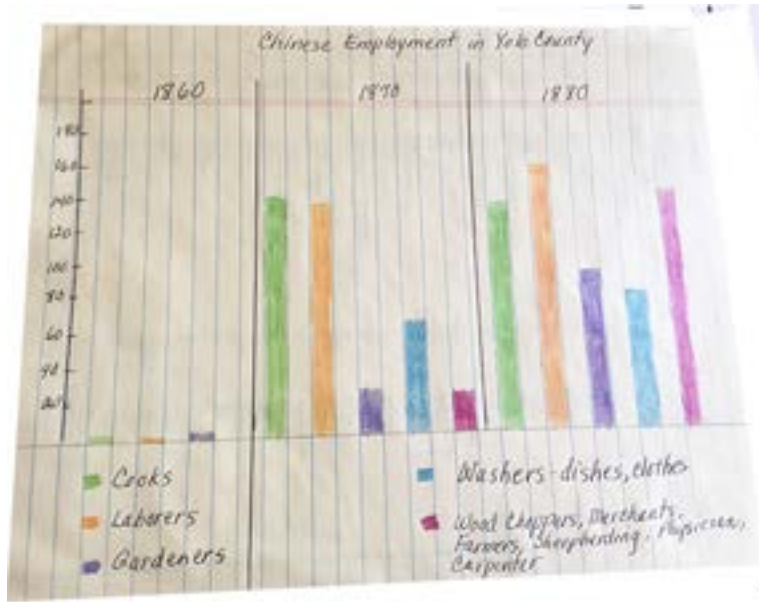 Chinese Employment in Yolo County
1860
1870
1880
180
160
140
120
100
80
60
40
20
Cooks
Laborers
Gardeners
Washers - dishes, clothes
Wood Choppers, Merchants,
Farmers, Sheepherding, Physician,
Carpenter